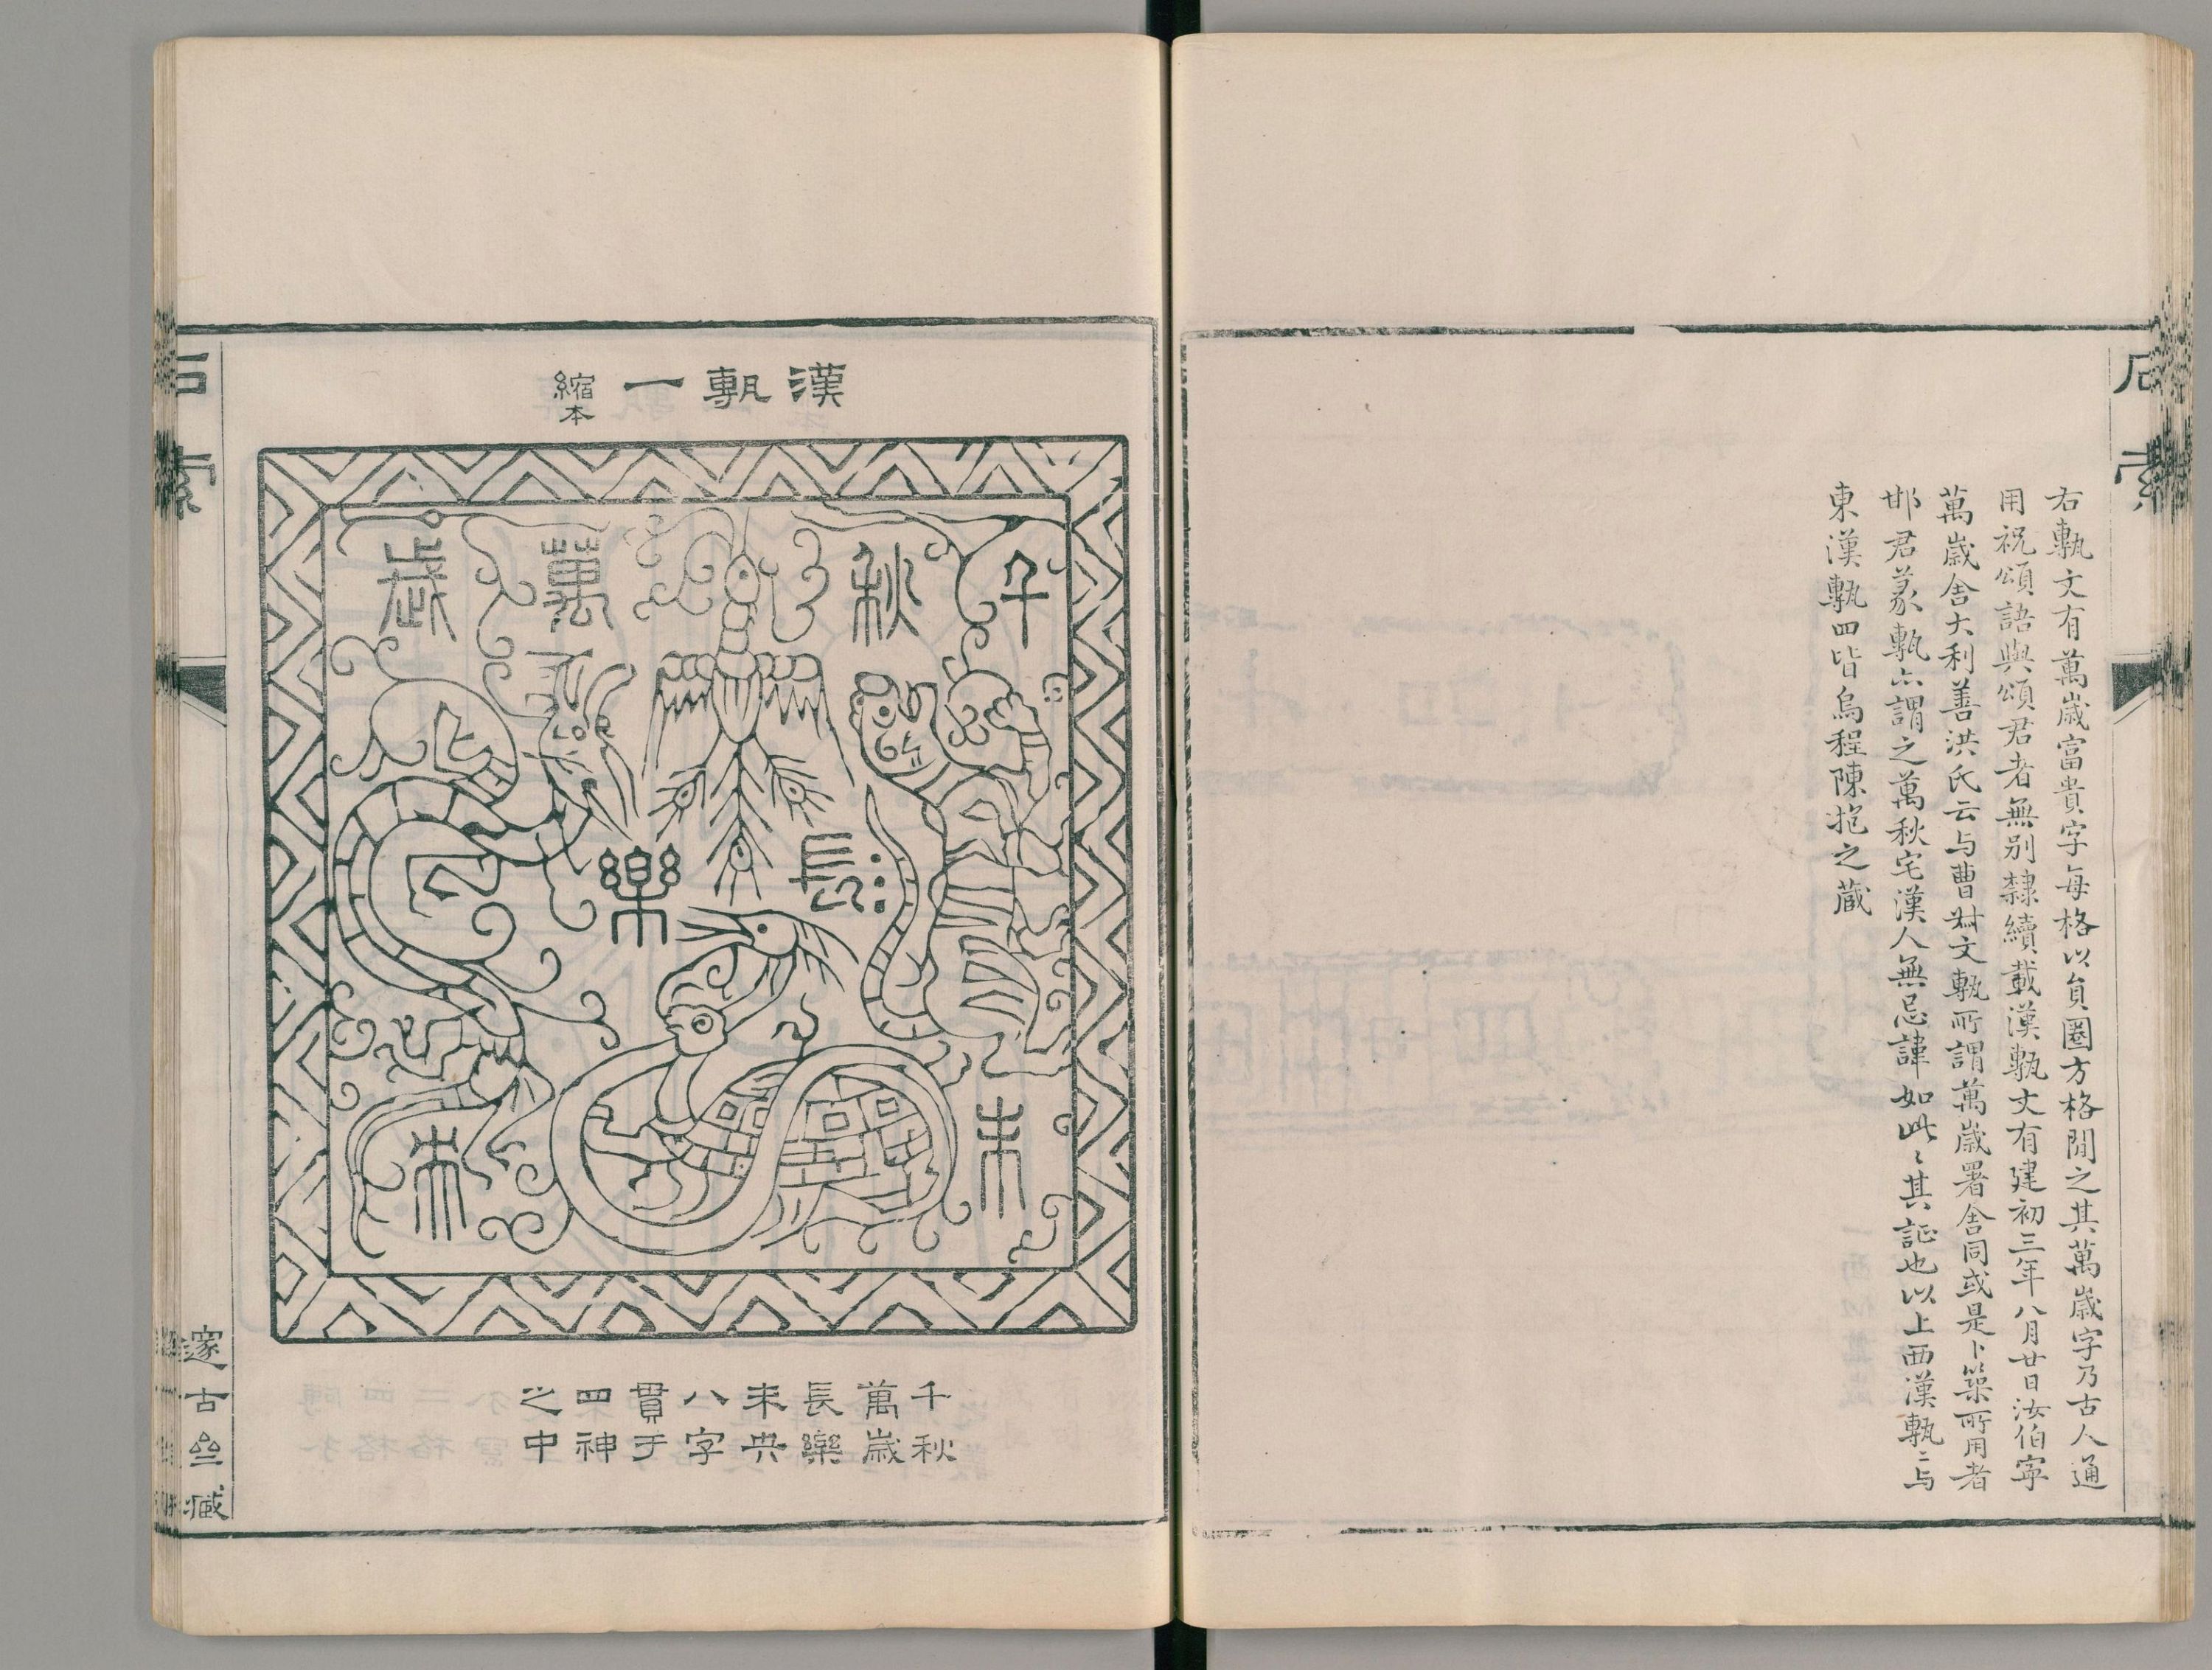 石索
右甎文有萬歲富貴字每格以員圈方格間之其萬歲字乃古人通
用祝頌語與頌君者無别隸續載漢甎文有建初三年八月廿日汝伯寧
萬歲舍大利善洪氏云与曹叔文甎所謂萬歲署舍同或是卜築所用者
邯君篆甎亦謂之萬秋宅漢人無忌諱如此此其證也以上西漢甎二与
東漢甎四皆烏程陳抱之藏
漢甎一
縮本
千秋
萬歲
長樂
未央
千秋
萬歲
長樂
未央
八字
貫于
四神
之中
石索
邃古亝臧